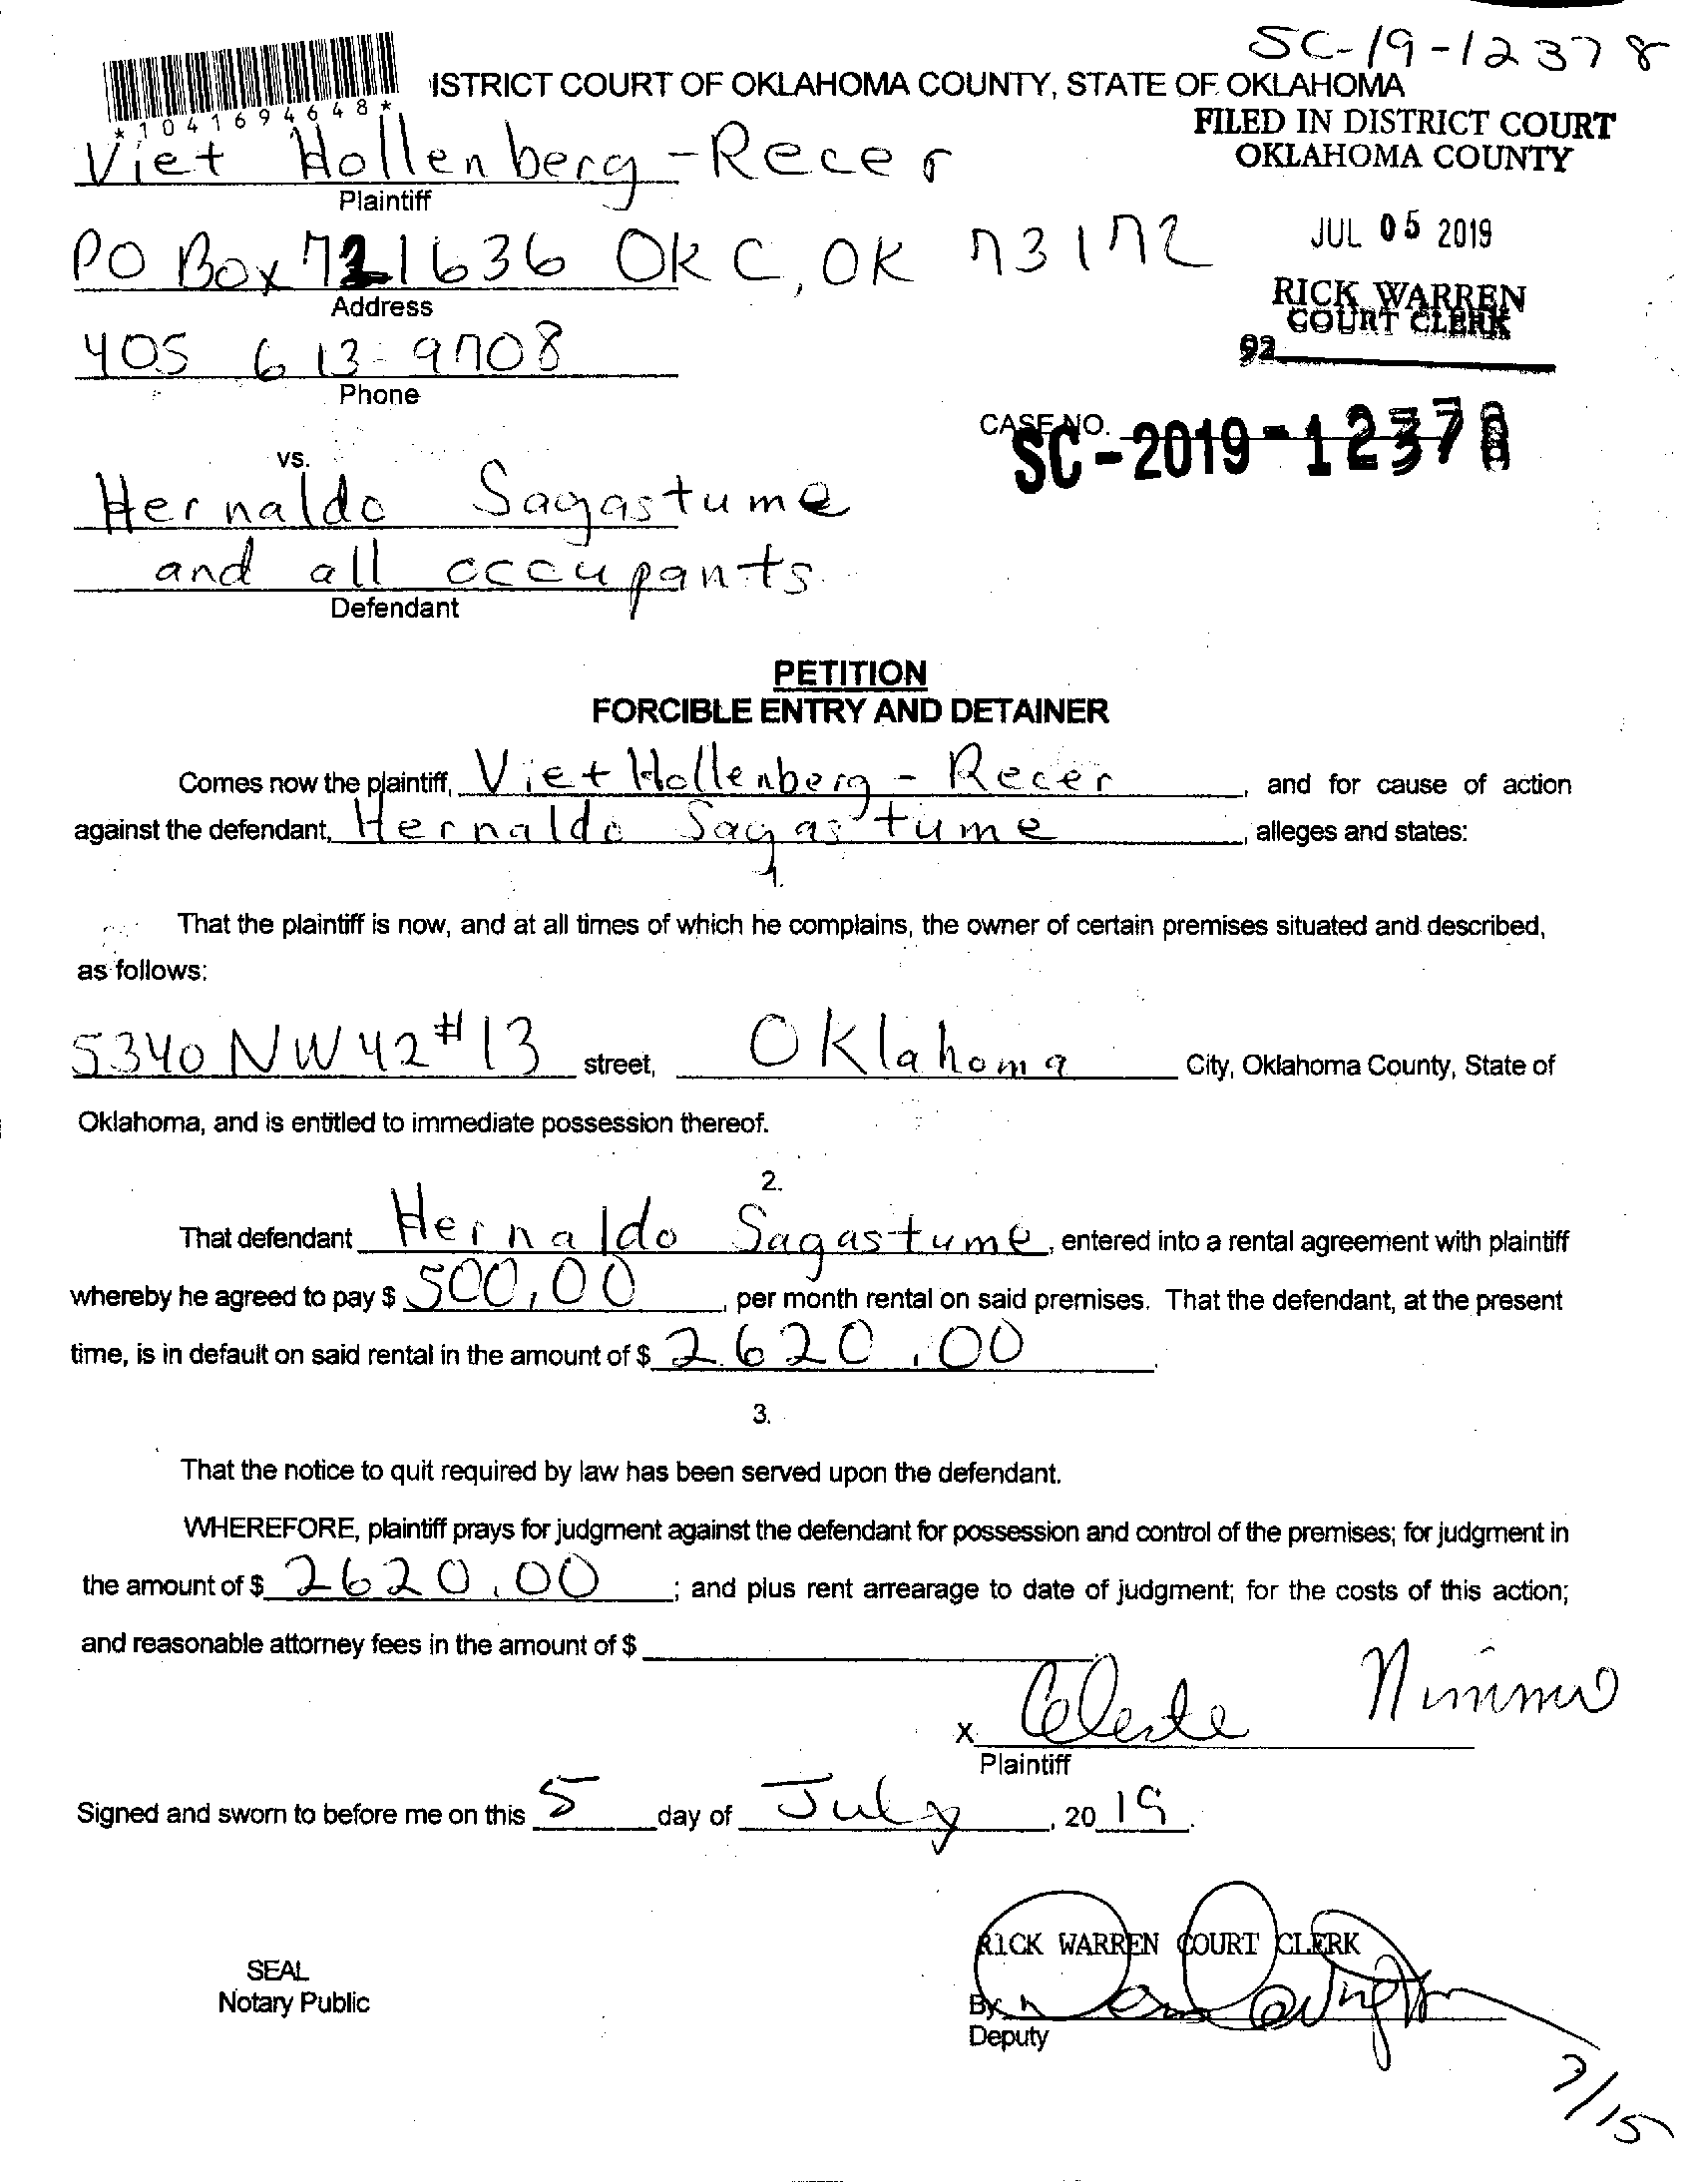 SC-19-12378
ISTRICT COURT OF OKLAHOMA COUNTY, STATE OF OKLAHOMA
*1041694648*
FILED IN DISTRICT COURT
OKLAHOMA COUNTY
Viet Hollenberg-Recer
Plaintiff
JUL 05 2019
PO Box 721636 OKC, OK 73172
Address
RICK WARREN
COURT CLERK
92
405 613-9708
Phone
CASE NO.
SC-2019-12378
vs.
Hernaldo Sagastume
and all occupants
Defendant
PETITION
FORCIBLE ENTRY AND DETAINER
Comes now the plaintiff, Viet Hollenberg-Recer, and for cause of action
against the defendant, Hernaldo Sagastume, alleges and states:
1.
That the plaintiff is now, and at all times of which he complains, the owner of certain premises situated and described,
as follows:
5340 NW 42 #13 street, Oklahoma City, Oklahoma County, State of
Oklahoma, and is entitled to immediate possession thereof.
2.
That defendant Hernaldo Sagastume, entered into a rental agreement with plaintiff
whereby he agreed to pay $ 500,00, per month rental on said premises. That the defendant, at the present
time, is in default on said rental in the amount of $ 2620.00.
3.
That the notice to quit required by law has been served upon the defendant.
WHEREFORE, plaintiff prays for judgment against the defendant for possession and control of the premises; for judgment in
the amount of $ 2620.00; and plus rent arrearage to date of judgment; for the costs of this action;
and reasonable attorney fees in the amount of $
X Celeste Nimmo
Plaintiff
Signed and sworn to before me on this 5 day of July, 2019.
RICK WARREN COURT CLERK
SEAL
Notary Public
By
Deputy
7/15